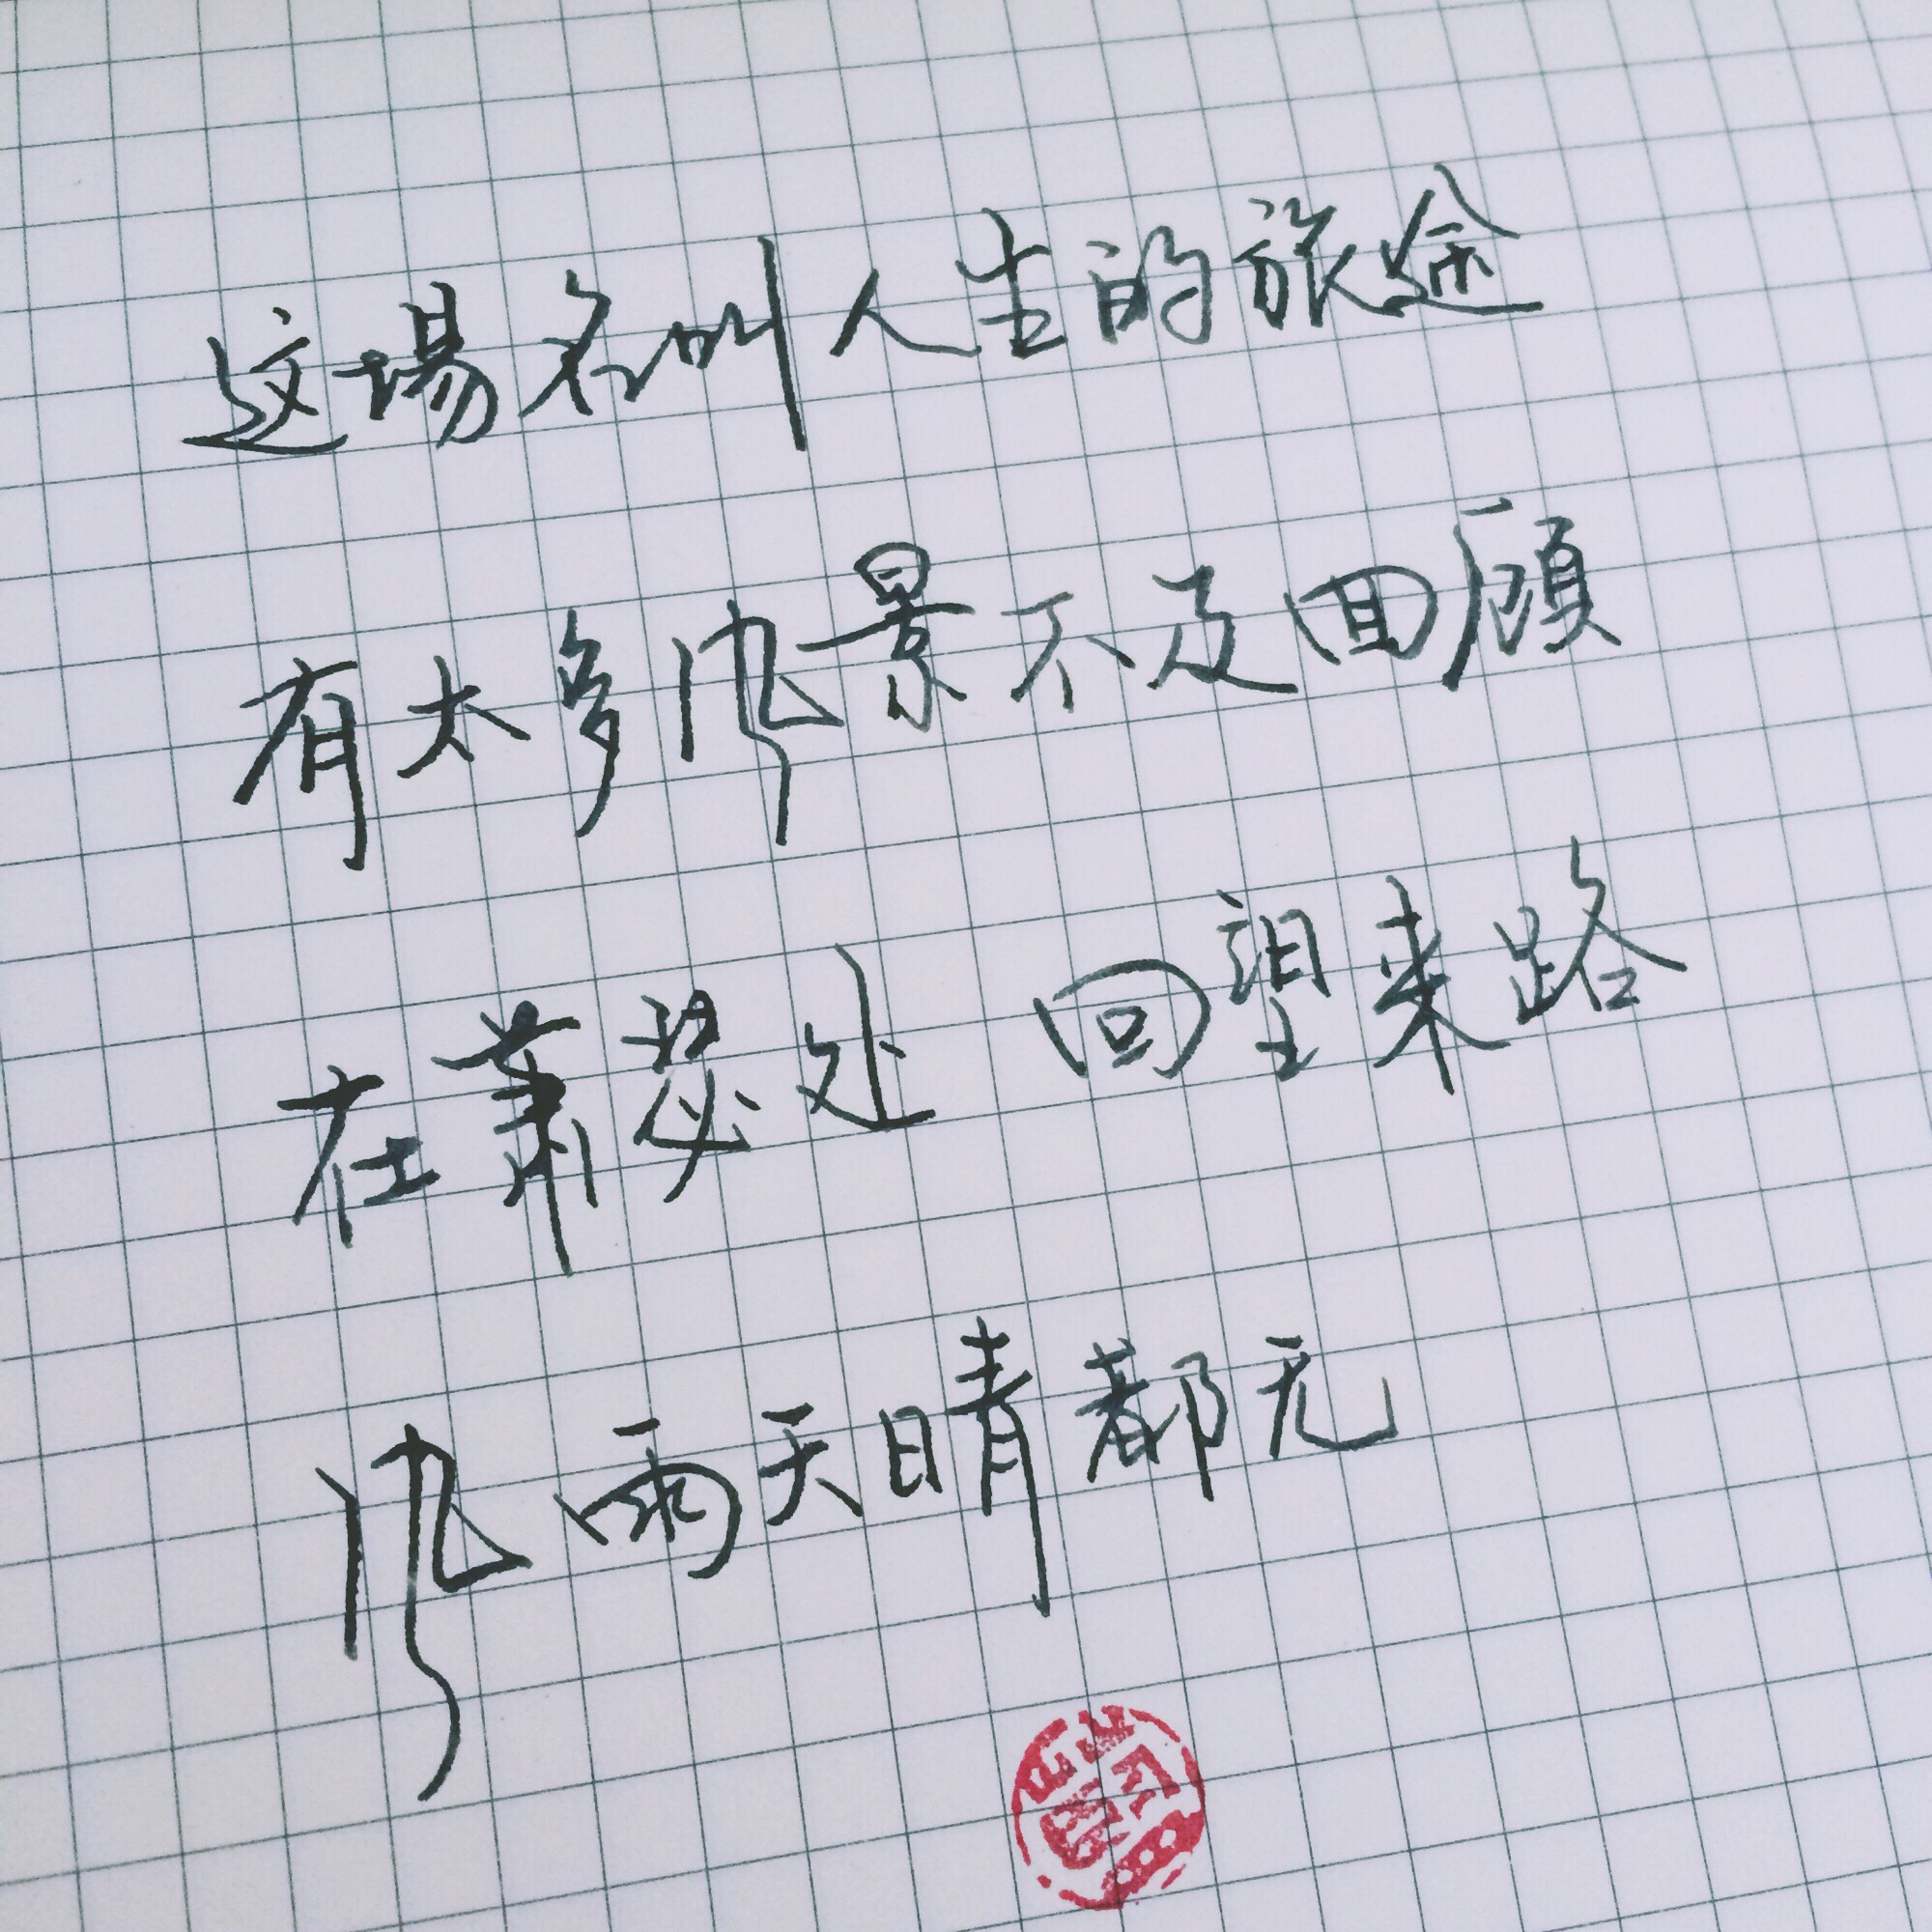 这場名叫人生的旅途
有太多风景不及回顾
在萧瑟处 回望来路
风雨天晴都无